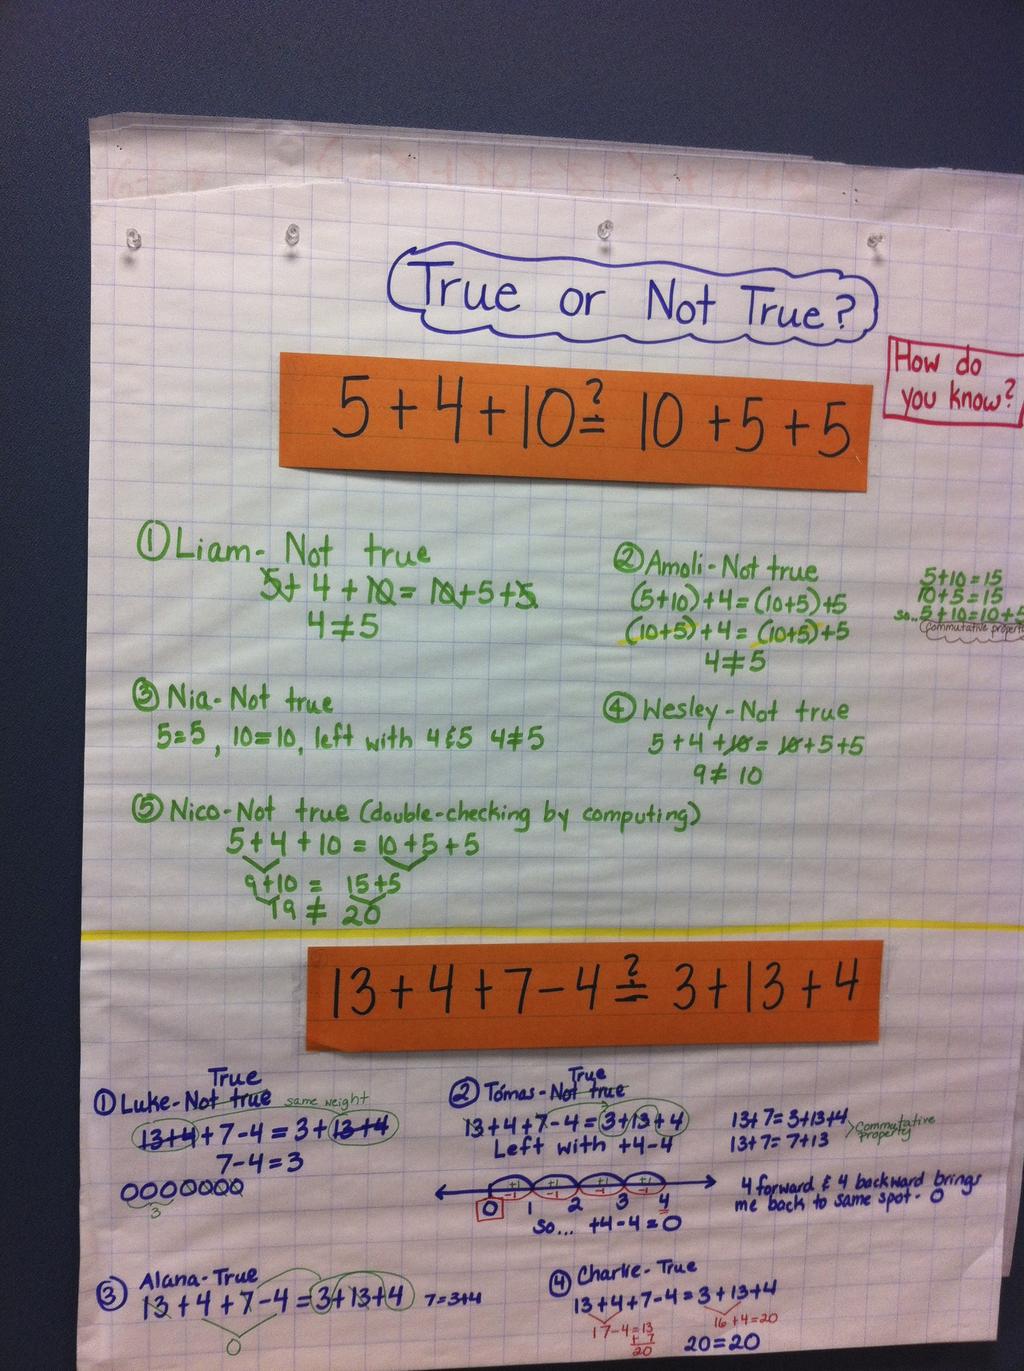 True or Not True?
How do
you know?
5+4+10 ?= 10+5+5
① Liam - Not true
5+4+10=10+5+5
4≠5
② Amoli - Not true
(5+10)+4=(10+5)+5
(10+5)+4=(10+5)+5
4≠5
5+10=15
10+5=15
so... 5+10=10+5
Commutative property
③ Nia - Not true
5=5, 10=10, left with 4 & 5 4≠5
④ Wesley - Not true
5+4+10=10+5+5
9≠10
⑤ Nico - Not true (double-checking by computing)
5+4+10=10+5+5
9+10=15+5
19≠20
13+4+7-4 ?= 3+13+4
True
① Luke - Not true same weight
13+4+7-4=3+13+4
7-4=3
3
True
② Tómas - Not true
13+4+7-4=3+13+4
Left with +4-4
13+7=3+13+4
13+7=7+13
Commutative
property
+1 +1 +1 +1
-1 -1 -1 -1
0 1 2 3 4
So... +4-4=0
4 forward & 4 backward brings
me back to same spot - 0
③ Alana - True
13+4+7-4=3+13+4 7=3+4
0
④ Charlie - True
13+4+7-4=3+13+4
17-4=13
+7
20
16+4=20
20=20